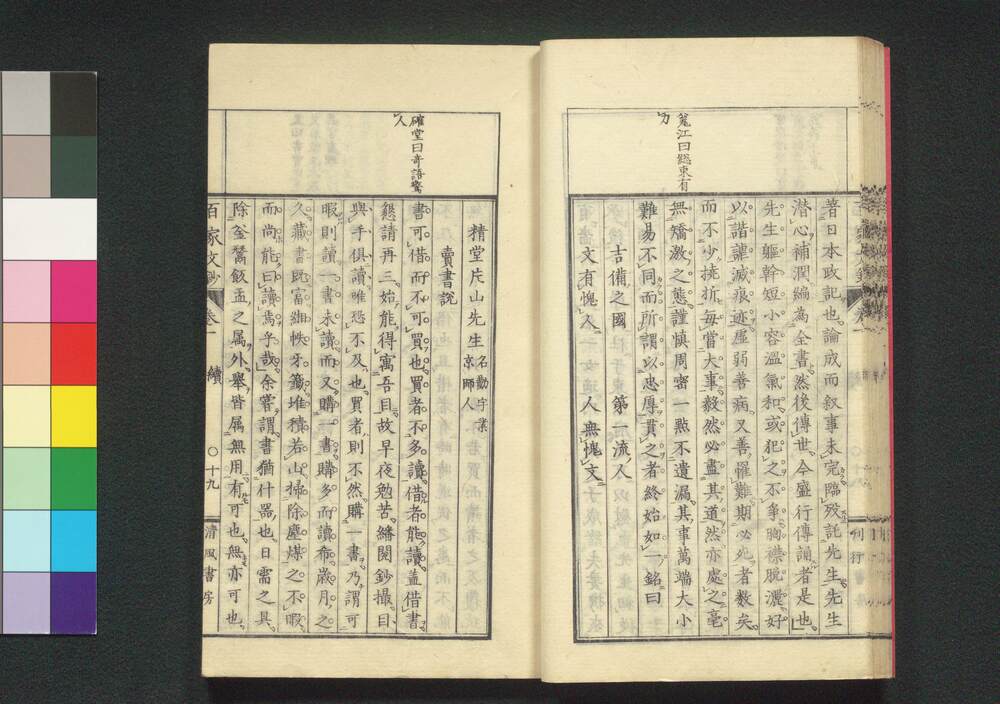 篁江曰懇東有
力
著日本政記也論成而叙事未完臨歿託先生先生
潜心補潤編為全書然後傳世今盛行傳誦者是也
先生軀幹短小容溫氣和或犯之不爭胸襟脫灑好
以諧謔滅痕迹虛弱善病又善罹難期必死者数矣
而不少撓折每當大事毅然必盡其道然亦處之毫
無矯激之態謹慎周密一點不遺漏其事萬端大小
難易不同而所謂以忠厚貫之者終始如一銘曰
吉備之國 第一流人
文有愧人 人無愧文
確堂曰奇語驚
人
精堂片山先生 名勤字業
京師人
賣書説
書可借而不可買也買者不多讀借者能讀蓋借書
懇請再三始能得寓吾目故早夜勉苦繙閱鈔撮目
與手俱讀唯恐不及也買者則不然購一書乃謂可
暇則讀一書未讀而又購一書購多而讀希歳月之
久藏書既富緗帙牙籤堆積若山掃除塵煤之不暇
而尚能曰讀焉乎哉余嘗謂書猶什器也日需之具
除釜鬵飯盂之属外舉皆属無用有可也無亦可也
百家文鈔 卷二 續 〇十九 清風書房